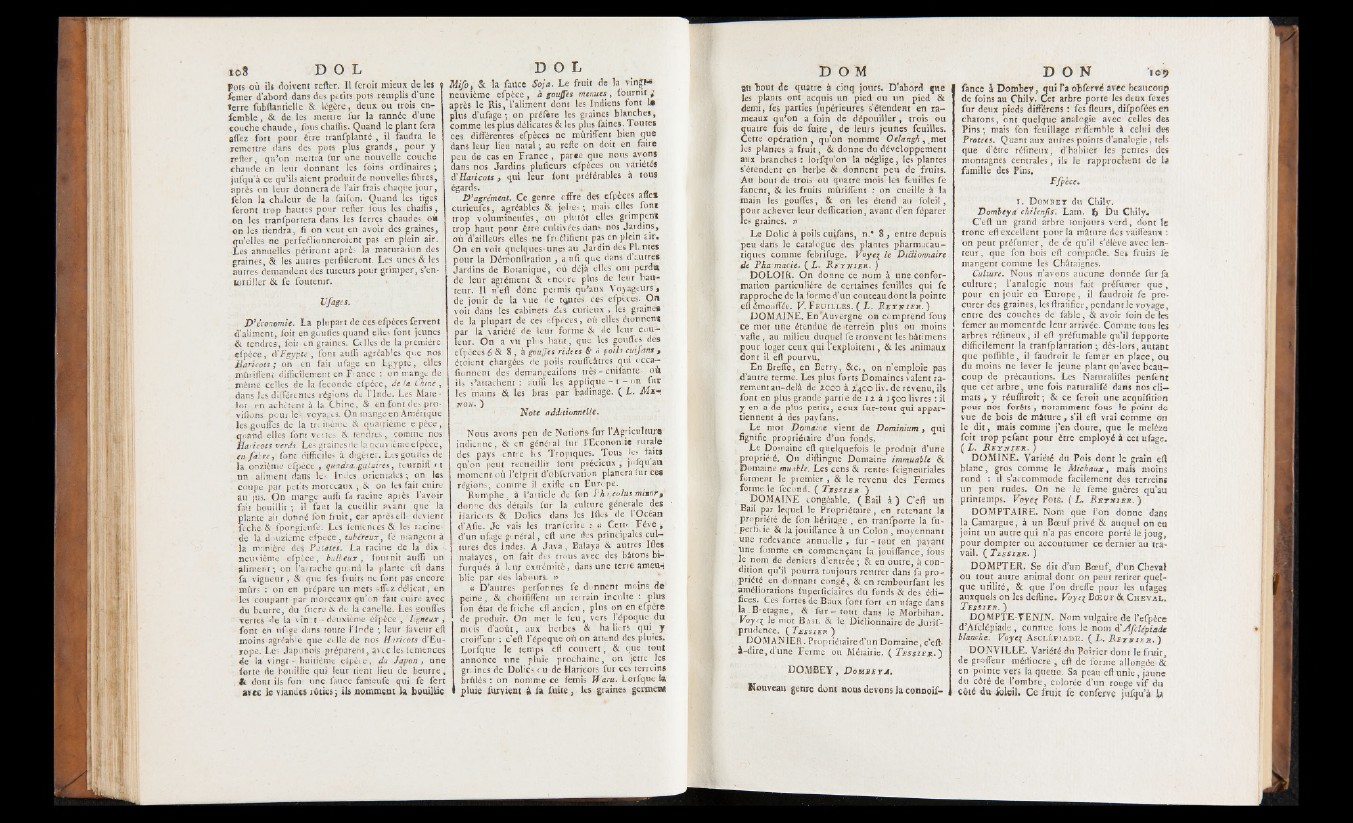 108 DOL DOL
Pots où ils doivent reſter. Il ſeroit mieux de les
ſemer d'abord dans des petits pots remplis d'une
terre ſubſtantielle & légère, deux ou trois en-
ſemble, & de les mettre ſur la tannée d'une
couche chaude, ſous chaſſis. Quand le plant ſera
aſſez fort pour être tranſplanté, il faudra le
remettre dans des pots plus grands, pour y
reſter, qu'on mettra ſur une nouvelle couche
chaude en leur donnant les ſoins ordinaires;
juſqu'à ce qu'ils aient produit de nouvelles fibres,
après on leur donnera de l'air frais chaque jour,
ſelon la chaleur de la ſaiſon. Quand les tiges
ſeront trop hautes pour reſter ſous les chaſſis,
on les tranſportera dans les ſerres chaudes où
on les tiendra, ſi on veut en avoir des graines,
qu'elles ne perfectionneroient pas en plein air.
Les annuelles périront après la maturation des
graines, & les autres perſiſteront. Les unes & les
autres demandent des tuteurs pour grimper, s'en-
tortiller & ſe ſoutenir.
Uſages.
D'économie. La plupart de ces eſpèces ſervent
d'aliment, ſoit en gouſſes quand elles ſont jeunes
& tendres, ſoit en graines. Celles de la première
eſpèce, d'Egypte, ſont auſſi agréables que nos
Haricots; on en fait uſage en Egypte, elles
mûriſſent difficilement en France: on mange de
même celles de la ſeconde eſpèce, de la Chine,
dans les différentes régions de l'Inde. Les Mate-
lots en achètent à la Chine, & en font des pro-
viſions pour les voyages. On mange en Amérique
les gouſſes de la troiſième & quatrième eſpèce,
quand elles ſont vertes & tendres, comme nos
Haricots verds. Les graines de la neuvième eſpèce,
en ſabre, ſont difficiles à digérer. Les gouſſes de
la onzième eſpèce, quadrangulaires, fourniſſent
un aliment dans les Indes orientales; on les
coupe par petits morceaux, & on les fait cuire
au jus. On mange auſſi ſa racine après l'avoir
fait bouillir; il faut la cueillir avant que la
plante ait donné ſon fruit, car après elle devient
ſèche & ſpongieuſe. Les ſemences & les racines
de la douzième eſpèce, tubéreux, ſe mangent à
la manière des Patates. La racine de la dix-
neuvième eſpèce, bulbeux, fournit auſſi un
aliment; on l'arrache quand la plante eſt dans
ſa vigueur, & que ſes fruits ne ſont pas encore
mûrs: on en prépare un mets aſſez délicat, en
les coupant par morceaux qu'on fait cuire avec
du beurre, du ſucre & de la canelle. Les gouſſes
vertes de la vingt-deuxième eſpèce, ligneux,
ſont en uſage dans toute l'Inde; leur ſaveur eſt
moins agréable que celle de nos Haricots d'Eu-
rope. Les Japonois préparent, avec les ſemences
de la vingt-huitième eſpèce, du Japon, une
ſorte de bouillie qui leur tient lieu de beurre,
& dont ils font une ſauce fameuſe qui ſe ſert
avec le viandes rôties; ils nomment la bouillie
Miſo, & la ſauce Soja. Le fruit de la vingt-
neuvième eſpèce, à gouſſes menues, fournit,
après le Ris, l'aliment dont les Indiens font le
plus d'uſage; on préfère les graines blanches,
comme les plus délicates & les plus ſaines. Toutes
ces différentes eſpèces ne mûriſſent bien que
dans leur lieu natal; au reſte on doit en faire
peu de cas en France, parce que nous avons
dans nos Jardins pluſieurs eſpèces ou variétés
d'Haricots, qui leur ſont préférables à tous
égards.
D'agrément. Ce genre offre des eſpèces aſſez
curieuſes, agréables & jolies; mais elles ſont
trop volumineuſes, ou plutôt elles grimpent
trop haut pour être cultivées dans nos Jardins,
où d'ailleurs elles ne fructifient pas en plein air.
On en voit quelques-unes au Jardin des Plantes
pour la Démonſtration, ainſi que dans d'autres
Jardins de Botanique, où déjà elles ont perdu
de leur agrément & encore plus de leur hau-
teur. Il n'eſt donc permis qu'aux Voyageurs,
de jouir de la vue de toutes ces eſpèces. On
voit dans les cabinets des curieux, les graines
de la plupart de ces eſpèces, où elles étonnent
par la variété de leur forme & de leur cou-
leur. On a vu plus haut, que les gouſſes des
eſpèces 6 & 8, à gouſſes ridées & à poils cuiſans,
étoient chargées de poils rouſſeâtres qui occa-
ſionnent des demangeaiſons très-cuiſantes où
ils s'attachent: auſſi les applique-t-on ſur
les mains & les bras par badinage. ( L. MENON. )
Note additionnelle.
Nous avons peu de Notions ſur l'Agriculture
indienne, & en général ſur l'Economie rurale
des pays entre les Tropiques. Tous les faits
qu'on peut recueillir ſont précieux, juſqu'au
moment où l'eſprit d'obſervation planera ſur ces
régions, comme il exiſte en Europe.
Rumphe, à l'article de ſon Phaſeolus minor,
donne des détails ſur la culture générale des
Haricots & Dolics dans les Iſles de l'Océan
d'Aſie. Je vais les tranſcrire: « Cette Fève,
d'un uſage général, eſt une des principales cul-
tures des Indes. A Java, Balaya & autres Iſles
malayes, on fait des trous avec des bâtons bi-
furqués à leur extrémité, dans une terre ameu-
blie par des labours. »
« D'autres perſonnes ſe donnent moins de
peine, & choiſiſſent un terrain inculte: plus
ſon état de friche eſt ancien, plus on en eſpère
de produit. On met le feu, vers l'époque du
mois d'août, aux herbes & halliers qui y
croiſſent: c'eſt l'époque où on attend des pluies.
Lorſque le temps eſt couvert, & que tout
annonce une pluie prochaine, on jette les
graines de Dolics ou de Haricots ſur ces terreins
brûlés: on nomme ce ſemis Waru. Lorſque la
pluie ſurvient à ſa ſuite, les graines germent
DOM DON 109
au bout de quatre à cinq jours. D'abord que
les plants ont acquis un pied ou un pied &
demi, ſes parties ſupérieures s'étendent en ra-
meaux qu'on a ſoin de dépouiller, trois ou
quatre fois de ſuite, de leurs jeunes feuilles.
Cette opération, qu'on nomme Oelangh, met
les plantes à fruit, & donne du développement
aux branches: lorſqu'on la néglige, les plantes
s'étendent en herbe & donnent peu de fruits.
Au bout de trois ou quatre mois les feuilles ſe
fanent, & les fruits mûriſſent: on cueille à la
main les gouſſes, & on les étend au ſoleil,
pour achever leur deſſication, avant d'en ſéparer
les graines. »
Le Dolic à poils cuiſans, n.° 8, entre depuis
peu dans le catalogue des plantes pharmaceu-
tiques comme febrifuge. Voyez le Dictionnaire
de Pharmacie. ( L. REYNIER. )
DOLOIR. On donne ce nom à une confor-
mation particulière de certaines feuilles qui ſe
rapproche de la forme d'un couteau dont la pointe
eſt émouſſée. V. FEUILLES. ( L. REYNIER. )
DOMAINE. En Auvergne on comprend ſous
ce mot une étendue de terrein plus ou moins
vaſte, au milieu duquel ſe trouvent les bâtimens
pour loger ceux qui l'exploitent, & les animaux
dont il eſt pourvu.
En Breſſe, en Berry, &c., on n'emploie pas
d'autre terme. Les plus forts Domaines valent ra-
rement au-delà de 2000 à 2400 liv. de revenu, ils
ſont en plus grande partie de 12 à 1500 livres: il
y en a de plus petits, ceux ſur-tout qui appar-
tiennent à des payſans.
Le mot Domaine vient de Dominium, qui
ſignifie propriétaire d'un fonds.
Le Domaine eſt quelquefois le produit d'une
propriété. On diſtingue Domaine immuable &
Domaine muable. Les cens & rentes ſeigneuriales
forment le premier, & le revenu des Fermes
forme le ſecond. ( TESSIER )
DOMAINE congéable. ( Bail à ) C'eſt un
Bail par lequel le Propriétaire, en retenant la
propriété de ſon héritage, en tranſporte la ſu-
perficie & la jouiſſance à un Colon, moyennant
une redevance annuelle, ſur-tout en payant
une ſomme en commençant la jouiſſance, ſous
le nom de deniers d'entrée; & en outre, à con-
dition qu'il pourra toujours rentrer dans ſa pro-
priété en donnant congé, & en rembourſant les
améliorations ſuperficiaires du fonds & des édi-
fices. Ces ſortes de Baux ſont fort en uſage dans
la Bretagne, & ſur-tout dans le Morbihan.
Voyez le mot BAIL & le Dictionnaire de Juriſ-
prudence. ( TESSIER )
DOMANIER. Propriétaire d'un Domaine, c'eſt-
à-dire, d'une Ferme ou Métairie. ( TESSIER. )
DOMBEY, DOMBEYA.
Nouveau genre dont nous devons la connoiſ-
ſance à Dombey, qui l'a obſervé avec beaucoup
de ſoins au Chily. Cet arbre porte les deux ſexes
ſur deux pieds différens: ſes fleurs, diſpoſées en
chatons, ont quelque analogie avec celles des
Pins; mais ſon feuillage reſſemble à celui des
Protées. Quant aux autres points d'analogie, tels
que d'être réſineux, d'habiter les pentes des
montagnes centrales, ils le rapprochent de la
famille des Pins.
Eſpèce.
1. DOMBEY du Chily.
Dombeya chilenſis. Lam. ♄ Du Chily.
C'eſt un grand arbre toujours verd, dont le
tronc eſt excellent pour la mâture des vaiſſeaux:
on peut préſumer, de ce qu'il s'élève avec len-
teur, que ſon bois eſt compacte. Ses fruits ſe
mangent comme les Châtaignes.
Culture. Nous n'avons aucune donnée ſur ſa
culture; l'analogie nous fait préſumer que,
pour en jouir en Europe, il faudroit ſe pro-
curer des graines, les ſtratifier, pendant le voyage,
entre des couches de ſable, & avoir ſoin de les
ſemer au moment de leur arrivée. Comme tous les
arbres réſineux, il eſt préſumable qu'il ſupporte
difficilement la tranſplantation; dès-lors, autant
que poſſible, il faudroit le ſemer en place, ou
du moins ne lever le jeune plant qu'avec beau-
coup de précautions. Les Naturaliſtes penſent
que cet arbre, une fois naturaliſé dans nos cli-
mats, y réuſſiroit; & ce ſeroit une acquiſition
pour nos forêts, notamment ſous le point de
vue de bois de mâture, s'il eſt vrai comme on
le dit, mais comme j'en doute, que le melèze
ſoit trop peſant pour être employé à cet uſage.
( L. REYNIER. )
DOMINE. Variété du Pois dont le grain eſt
blanc, gros comme le Michaux, mais moins
rond: il s'accommode facilement des terreins
un peu rudes. On ne le ſème guères qu'au
printemps. Voyez POIS. ( L. REYNIER. )
DOMPTAIRE. Nom que l'on donne dans
la Camargue, à un Bœuf privé & auquel on en
joint un autre qui n'a pas encore porté le joug,
pour dompter ou accoutumer ce dernier au tra-
vail. ( TESSIER. )
DOMPTER. Se dit d'un Bœuf, d'un Cheval
ou tout autre animal dont on peut retirer quel-
que utilité, & que l'on dreſſe pour les uſages
auxquels on les deſtine. Voyez BŒUF & CHEVAL.
TESSIER. )
DOMPTE-VENIN. Nom vulgaire de l'eſpèce
d'Aſclépiade, connue ſous le nom d'Aſclépiade
blanche. Voyez ASCLÉPIADE. ( L. REYNIER. )
DONVILLE. Variété du Poirier dont le fruit,
de groſſeur médiocre, eſt de forme allongée &
en pointe vers la queue. Sa peau eſt unie, jaune
du côté de l'ombre, colorée d'un rouge vif du
côté du ſoleil. Ce fruit ſe conſerve juſqu'à la